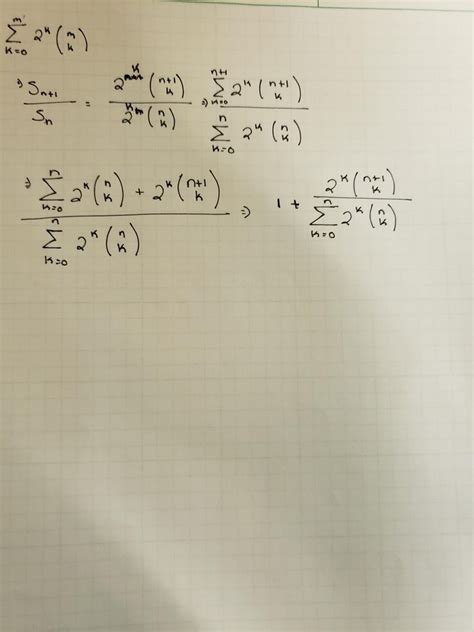 ∑_{k=0}^{n} 2^k (n k)
⇒ S_{n+1} / S_n = 2^k (n+1 k) / 2^k (n k) ⇒ ∑_{k=0}^{n+1} 2^k (n+1 k) / ∑_{k=0}^{n} 2^k (n k)
⇒ ∑_{k=0}^{n} 2^k (n k) + 2^k (n+1 k) / ∑_{k=0}^{n} 2^k (n k) ⇒ 1 + 2^k (n+1 k) / ∑_{k=0}^{n} 2^k (n k)